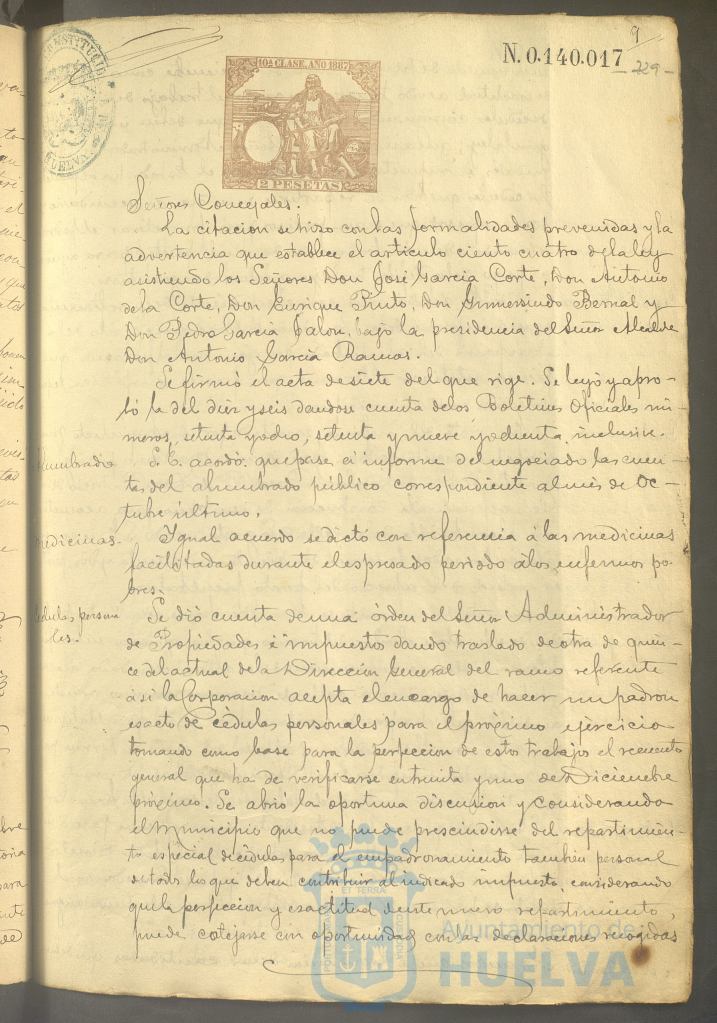 9
N. 0.140.017
229
10ª CLASE, AÑO 1887
2 PESETAS
HUELVA
Señores Concejales.
La citacion se hizo con las formalidades prevenidas y la
advertencia que establece el articulo ciento cuatro de la ley
asistiendo los Señores Don José Garcia Corte, Don Antonio
de la Corte, Don Enrique Pinto, Don Gumersindo Bernal y
Don Pedro Garcia Jalon, bajo la presidencia del Señor Alcalde
Don Antonio Garcia Ramos.
Se firmó el acta de siete del que rige. Se leyó y apro-
bó la del diez y seis dandose cuenta de los Boletines Oficiales nú-
meros, setenta y ocho, setenta y nueve y ochenta inclusive.
Alumbrado
S. E. acordó que pase á informe del negociado las cuen-
tas del alumbrado público correspondiente al mes de Oc-
tubre último.
Medicinas.
Ygual acuerdo se dictó con referencia á las medicinas
facilitadas durante el espresado periodo á los enfermos po-
bres.
Cédulas persona
les.
Se dió cuenta de una órden del Señor Administrador
de Propiedades é impuestos dando traslado de otra de quin-
ce del actual de la Direccion General del ramo referente
á si la Corporacion acepta el encargo de hacer un padron
esacto de cédulas personales para el próximo ejercicio
tomando como base para la perfeccion de estos trabajos el recuento
general que ha de verificarse en treinta y uno de Diciembre
próximo. Se abrió la oportuna discusion y considerando
el Municipio que no puede prescindirse del repartimien-
to especial de cédulas para el empadronamiento tambien personal
de todos los que deben contribuir al indicado impuesto, considerando
que la perfeccion y exactitud de este nuevo repartimiento,
puede cotejarse con oportunidad con las declaraciones recogidas
Ayuntamiento de
HUELVA